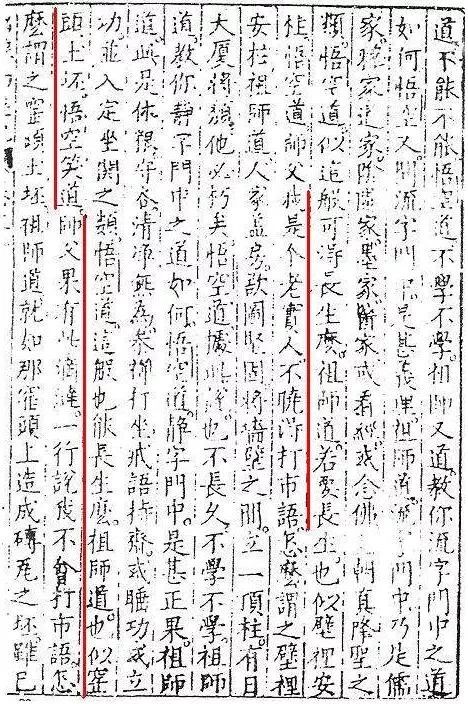 道不能不能悟空道不學不學祖師又道教你流字門中之道
如何悟空又問流字門中是甚義理祖師道流字門中乃是儒
家釋家道家陰陽家墨家醫家或看經或念佛朝真降聖之
類悟空道似這般可得長生麼祖師道若要長生也似壁裡安
柱悟空道師父我是个老實人不曉得打市語怎麼謂之壁裡
安柱祖師道人家盖房欲圖堅固將墻壁之間立一頂柱有日
大厦將頹他必朽矣悟空道據此說也不長久不學不學祖師
道教你靜字門中之道如何悟空道靜字門中是甚正果祖師
道此是休粮守谷清净無為參禪打坐戒語持齋或睡功或立
功並入定坐關之類悟空道這般也能長生麼祖師道也似窑
頭土坯悟空笑道師父果有此滴澾一行說我不會打市語怎
麼謂之窑頭土坯祖師道就如那窑頭上造成磚瓦之坯雖已